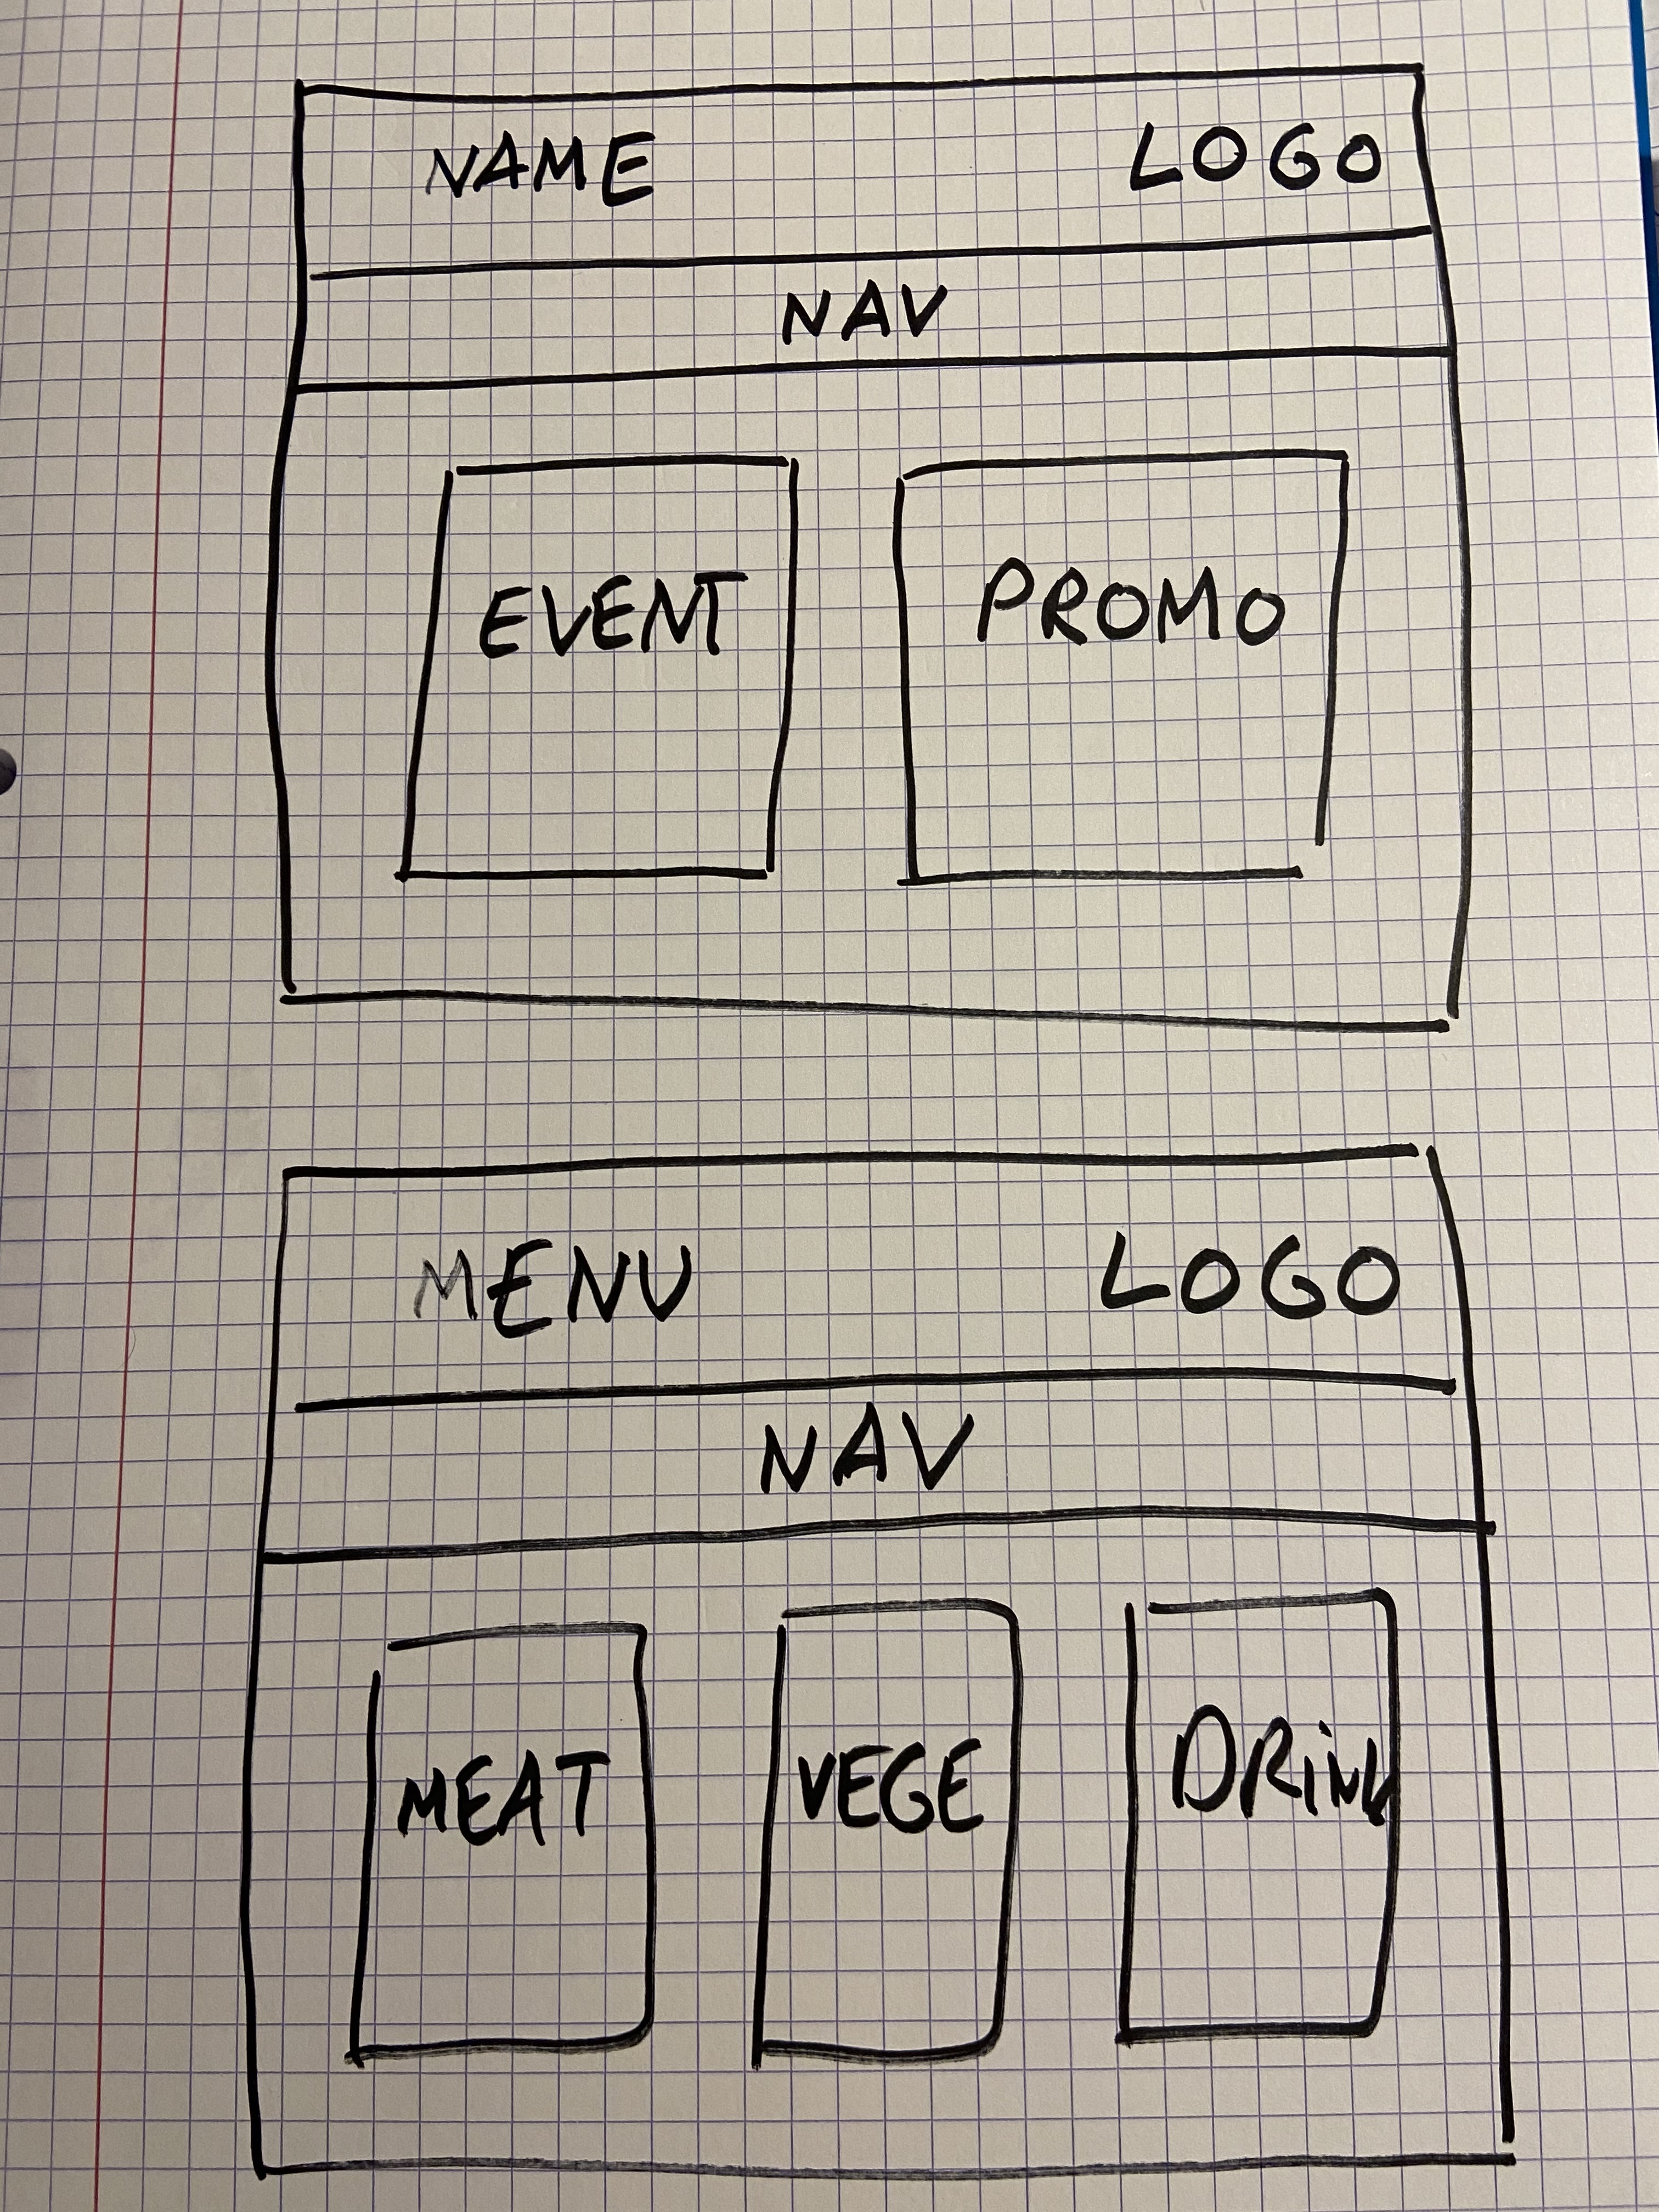 NAME LOGO
NAV
EVENT PROMO
MENU LOGO
NAV
MEAT VEGE DRiNK